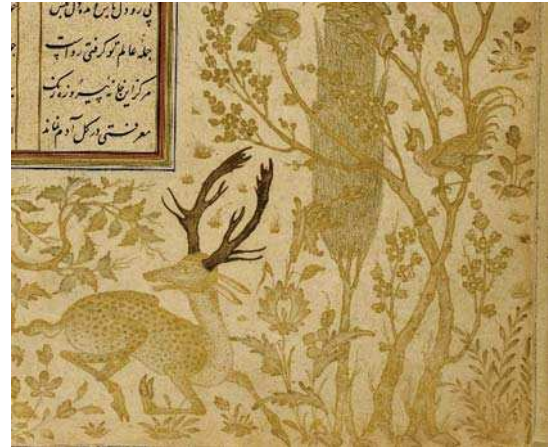 پی رو دل باش مده دل بکس
جمله عالم تو گرفتی رواست
مرکز این خانه پیروزه رنگ
معرفتی در گل آدم نماند